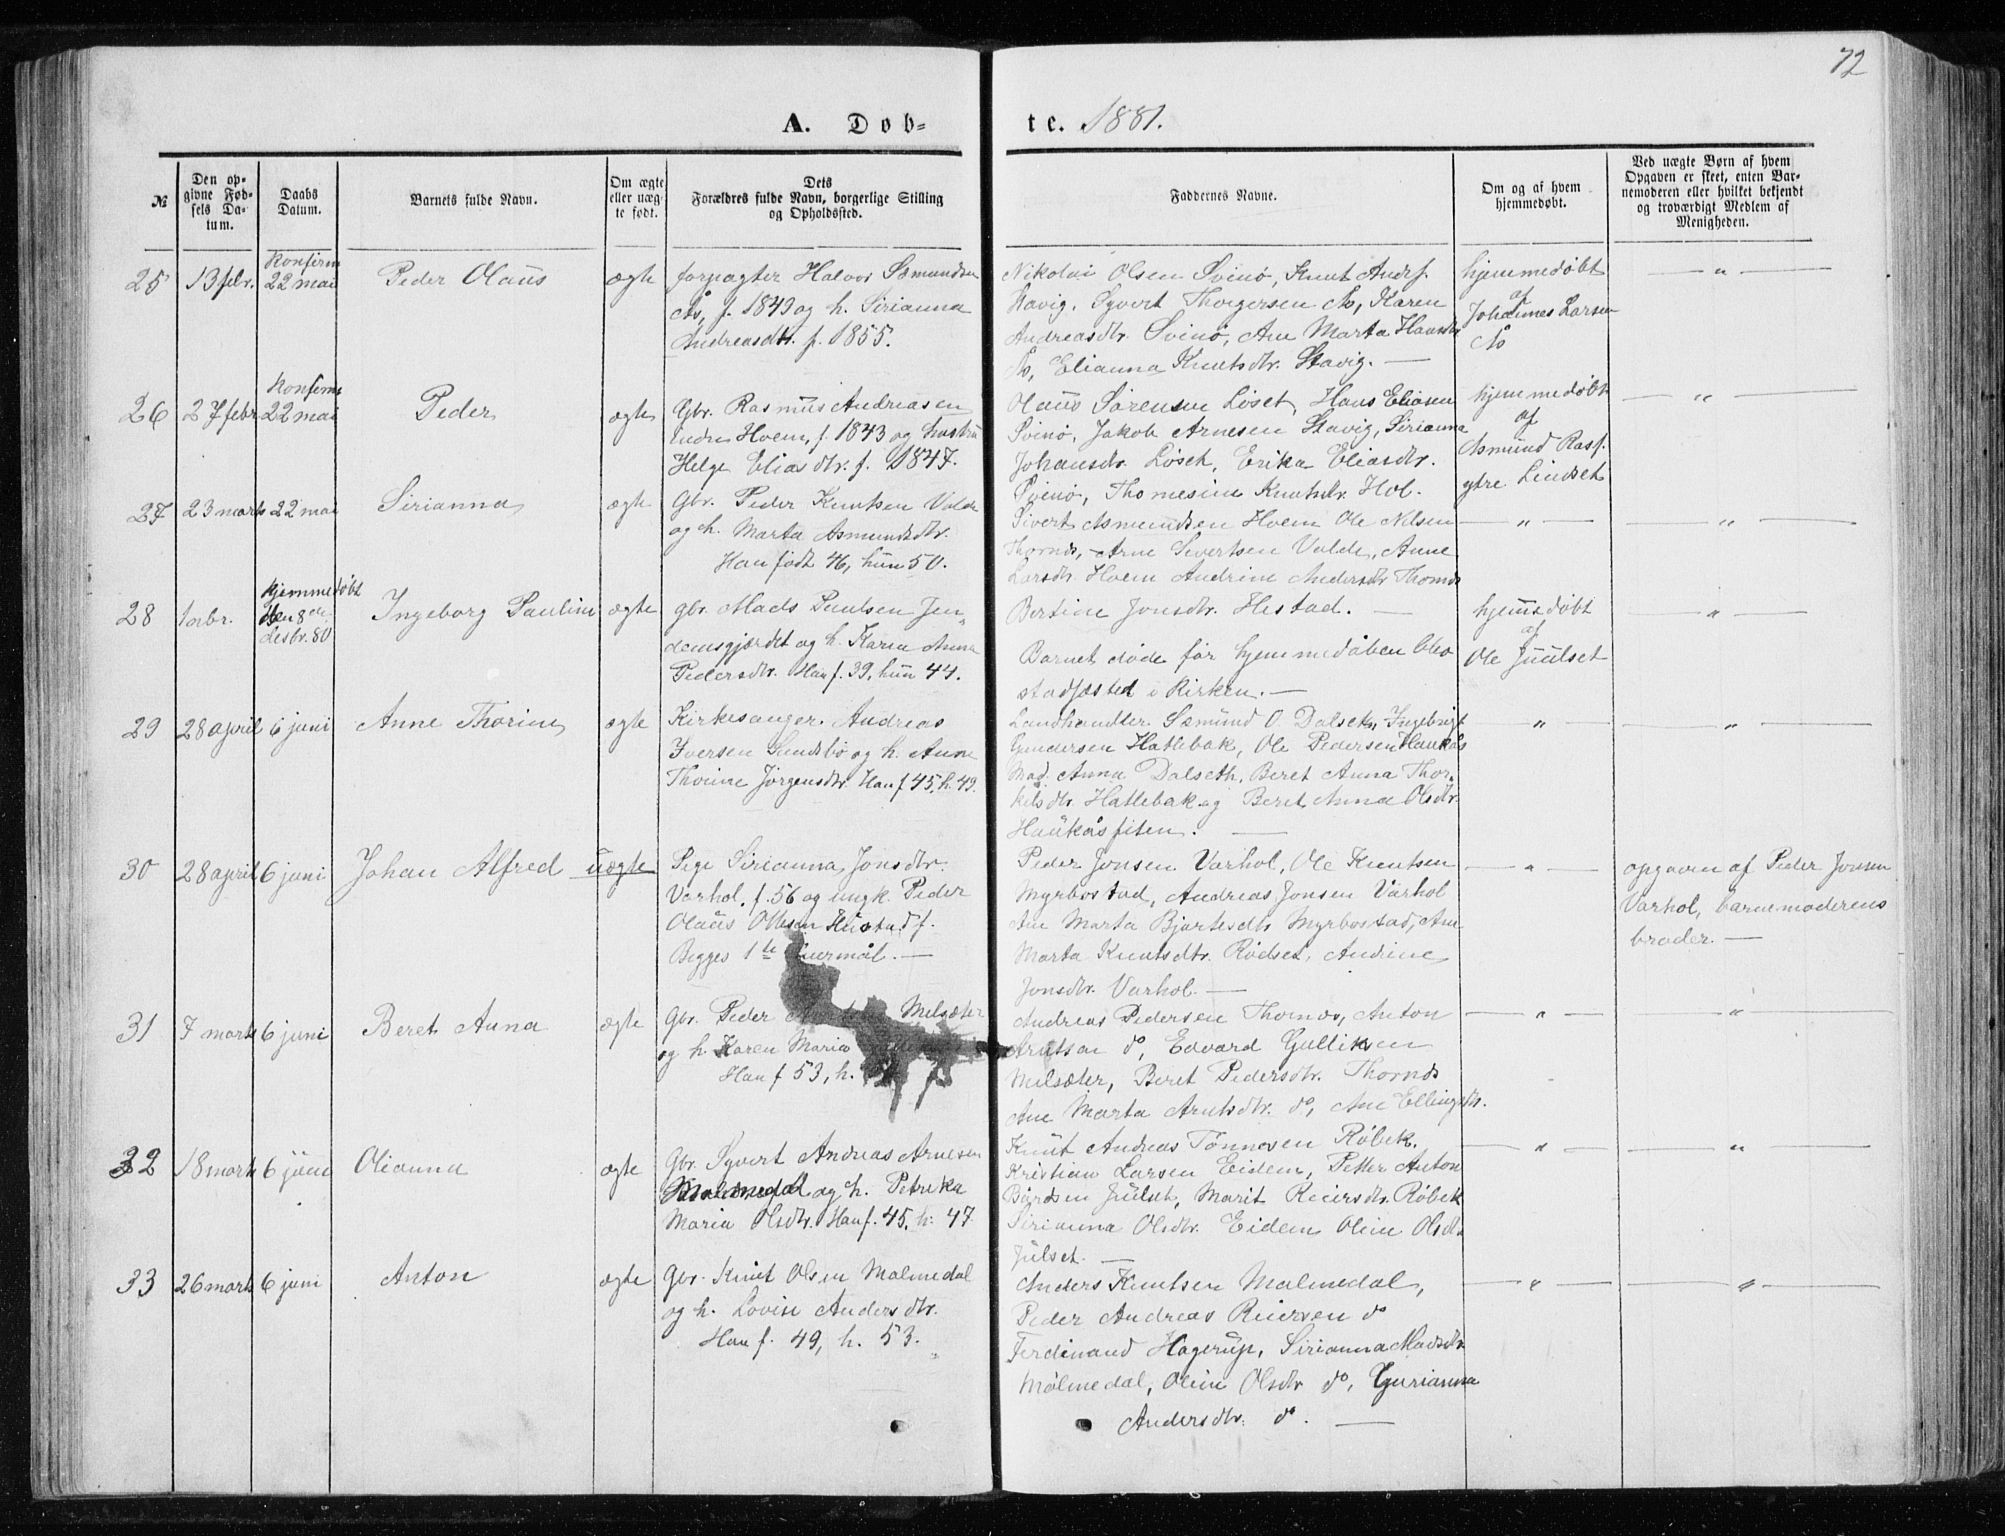 72
A. Dob-
te. 1881.
№
Den op-
givne Fød-
sels Da-
tum.
Daabs
Datum.
Barnets fulde Navn.
Om ægte
eller uæg-
te født.
Dets
Forældres fulde Navn, borgerlige Stilling
og Opholdssted.
Faddernes Navne.
Om og af hvem
hjemmedøbt.
Ved uægte Børn af hvem
Opgaven er skeet, enten Bar-
nemoderen eller hvilket bekjendt
og troværdigt Medlem af
Menigheden.
25
13 febr.
Konfirm
22 mai
Peder Olaus
ægte
forpagter Halvor Sæmundsen
Ås, f. 1843 og h. Sirianna
Andreasdtr. f. 1855.
Nikolai Olsen Svinø, Knut Andrs.
Stavig, Syvert Thorgersen Ås, Karen
Andreasdtr. Svinø, Ane Marta Hansdtr
Ås, Elianna Knutsdtr. Stavig. —
hjemmedøbt
af
Johannes Larsen
Ås
— " —
26
27 febr
Konfirm
22 mai
Peder
ægte
Gbr. Rasmus Andreasen
indre Hoem, f. 1843 og hustru
Helge Eliasdtr. f. 1847.
Olaus Sørensen Løset, Hans Eliasen
Svinø, Jakob Arnesen Stavig, Sirianna
Johansdtr. Løset, Erika Eliasdtr.
Svinø, Thomesine Knutsdtr. Hol.
hjemmedøbt
af
Asmund Rasf.
ytre Lindset
— " —
27
23 marts
22 mai
Sirianna
ægte
Gbr. Peder Knutsen Valde
og h. Marta Asmundsdtr.
Han født 46, hun 50.
Sivert Asmundsen Hoem Ole Nilsen
Thornæs, Arne Sivertsen Valde, Anne
Larsdtr. Hoem Andrine Andersdtr Thornæs
Bertine Jonsdtr. Hestad. —
— " —
— " —
28
1 nbr.
hjemmedøbt
den 8de
desbr. 80
Ingeborg Pauline
ægte
gbr. Mads Paulsen Jen-
demsgjærdet og h. Karen Anna
Pedersdtr. Han f. 39, hun 44.
Barnet døde før hjemmedåben blev
stadfæsted i Kirken. —
hjemmedøbt
af
Ole Juulset
— " —
29
28 april
6 juni
Anne Thorine
ægte
Kirkesanger Andreas
Iversen Sundsbø og h. Anne
Thorine Jørgensdtr. Han f 45, h. 49.
Landhandler Sæmund O. Dalseth, Ingebrigt
Gundersen Hatlebak, Ole Pedersen Haukås
Mad. Anna Dalseth, Beret Anna Thor-
kilsdtr. Hatlebak og Beret Anna Olsdtr.
Haukåsfiten. —
— " —
— " —
30
28 april
6 juni
Johan Alfred
uægte
Pige Sirianna Jonsdtr.
Varhol, f. 56 og ungk. Peder
Olaus Olsen Hustad f.
Begges 1te leiermål. —
Peder Jonsen Varhol, Ole Knutsen
Myrbostad, Andreas Jonsen Varhol
Ane Marta Bjartesdtr Myrbostad, Ane
Marta Knutsdtr. Rødset, Andrine
Jonsdtr. Varhol. —
— " —
opgaven af Peder Jonsen
Varhol, barnemoderens
broder. —
31
7 marts
6 juni
Beret Anna
ægte
Gbr. Peder Melsæter
og h. Karen Maria
Han f 53, h.
Andreas Pedersen Thornæs, Anton
Arntsen do, Edvard Gulliksen
Melsæter, Beret Pedersdtr. Thornæs
Ane Marta Arntsdtr. do, Ane Ellingsdtr.
— " —
— " —
32
18 marts
6 juni
Olianna
ægte
Gbr. Syvert Andreas Arnesen
Malmedal og h. Petrika
Maria Olsdtr. Han f. 45, h. 47
Knut Andreas Tønnesen Røbek,
Kristian Larsen Eidem, Petter Anton
Bårdsen Julset, Marit Reiersdtr. Røbek
Sirianna Olsdtr. Eidem Oline Olsdtr
Julset. —
— " —
— " —
33
26 marts
6 juni
Anton
ægte
Gbr. Knut Olsen Malmedal
og h. Lovise Andersdtr.
Han f. 49, h. 53.
Anders Knutsen Malmedal,
Peder Andreas Reiersen do
Ferdinand Hagerup, Sirianna Madsdtr
Malmedal, Oline Olsdtr do, Gurianna
Andersdtr. do. —
— " —
— " —